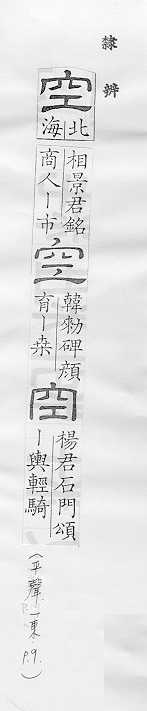 隸辨
空
北
海
相景君銘
商人｜市
空
韓勑碑顏
育｜桒
空
楊君石門頌
｜輿輕騎
(平聲 一東 P.9.)